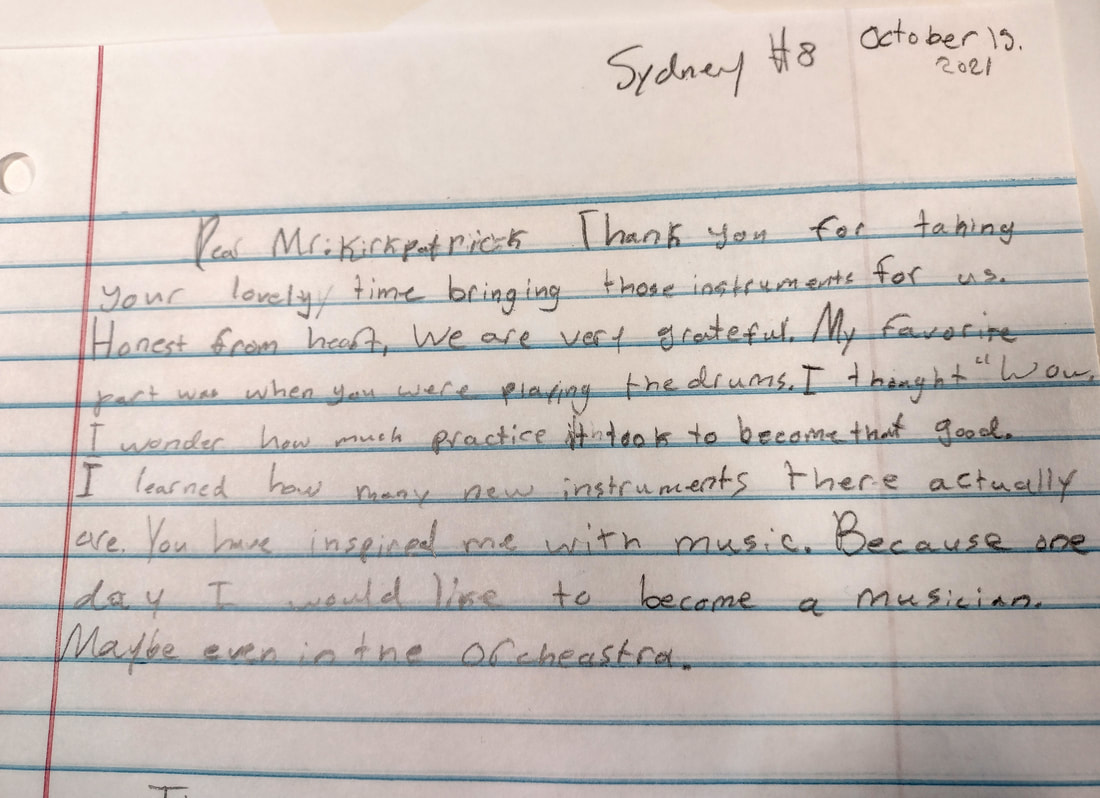 Sydney #8 October 19.
2021
Dear Mr. Kirkpatrick Thank you for taking
your lovely, time bringing those instruments for us.
Honest from heart, We are very grateful. My favorite
part was when you were playing the drums. I thought "Wow,
I wonder how much practice it took to become that good.
I learned how many new instruments there actually
are. You have inspired me with music. Because one
day I would like to become a musician.
Maybe even in the orcheastra.